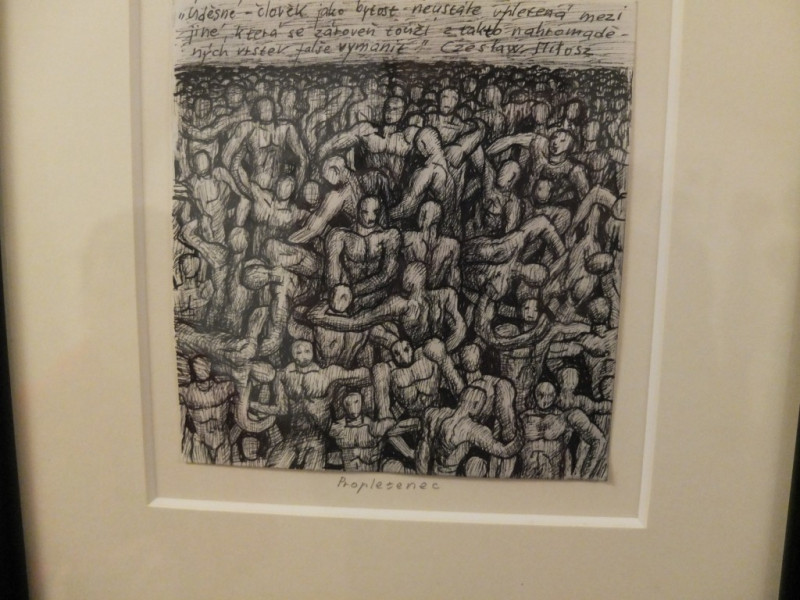 „Úděsné – člověk jako bytost neustále vpletená mezi
jiné, která se zároveň touží z takto nahromadě-
ných vrstev falše vymanit." Czesław Miłosz
Propletenec